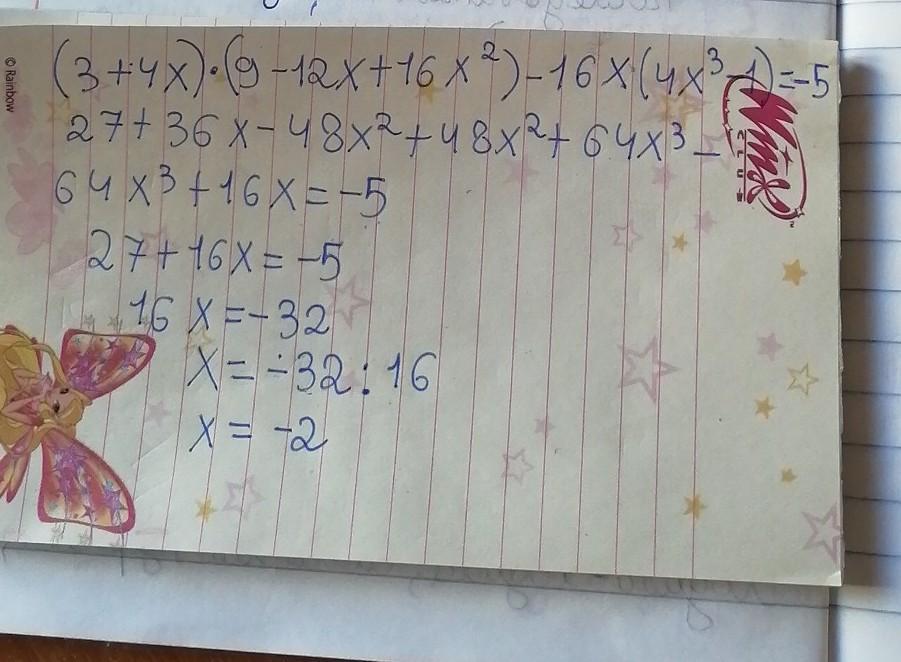 © Rainbow
(3+4x)·(9-12x+16x²)-16x(4x³-1)=-5
27+36x-48x²+48x²+64x³-
64x³+16x=-5
27+16x=-5
16x=-32
x=-32:16
x=-2
Winx
CLUB